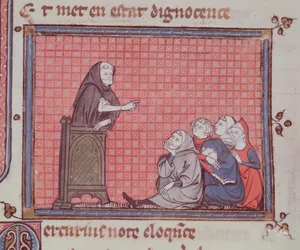 Et met en estat dignocence
Mercurius note eloqu̅ce